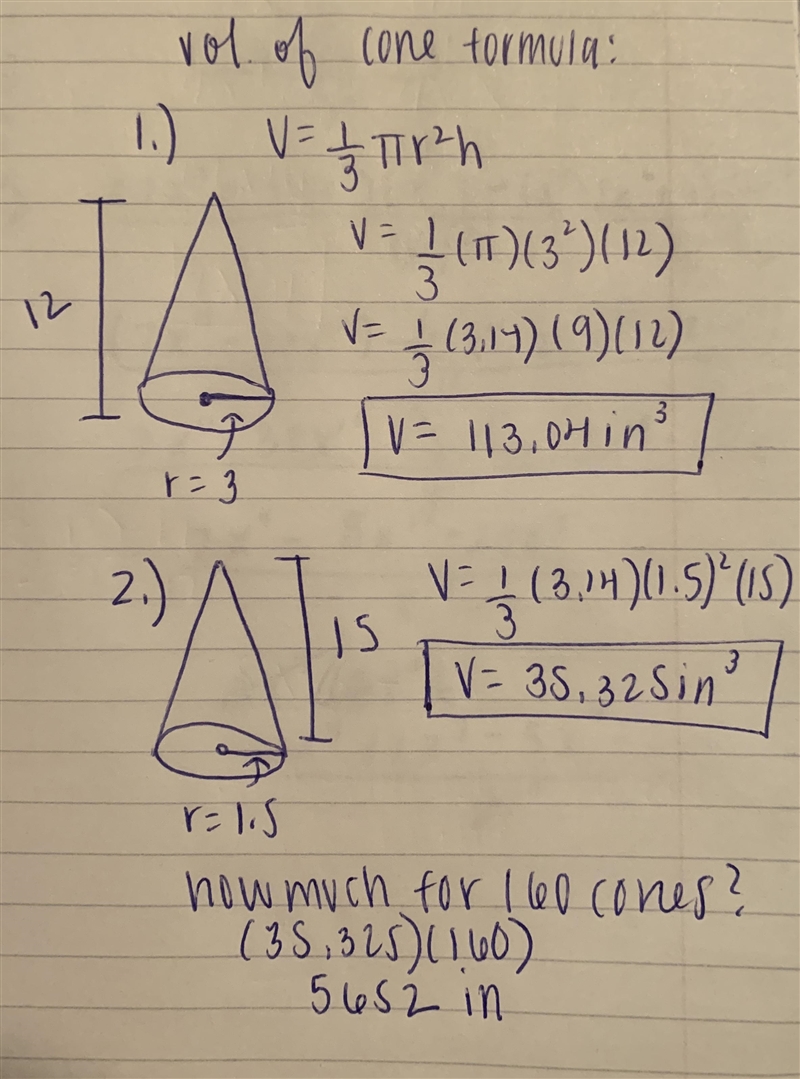 vol. of cone formula:
1.) V = 1/3 πr²h
V = 1/3 (π)(3²)(12)
12
V = 1/3 (3.14)(9)(12)
V = 113.04 in³
r = 3
2.) V = 1/3 (3.14)(1.5)²(15)
15
V = 35.325 in³
r = 1.5
how much for 160 cones?
(35.325)(160)
5652 in